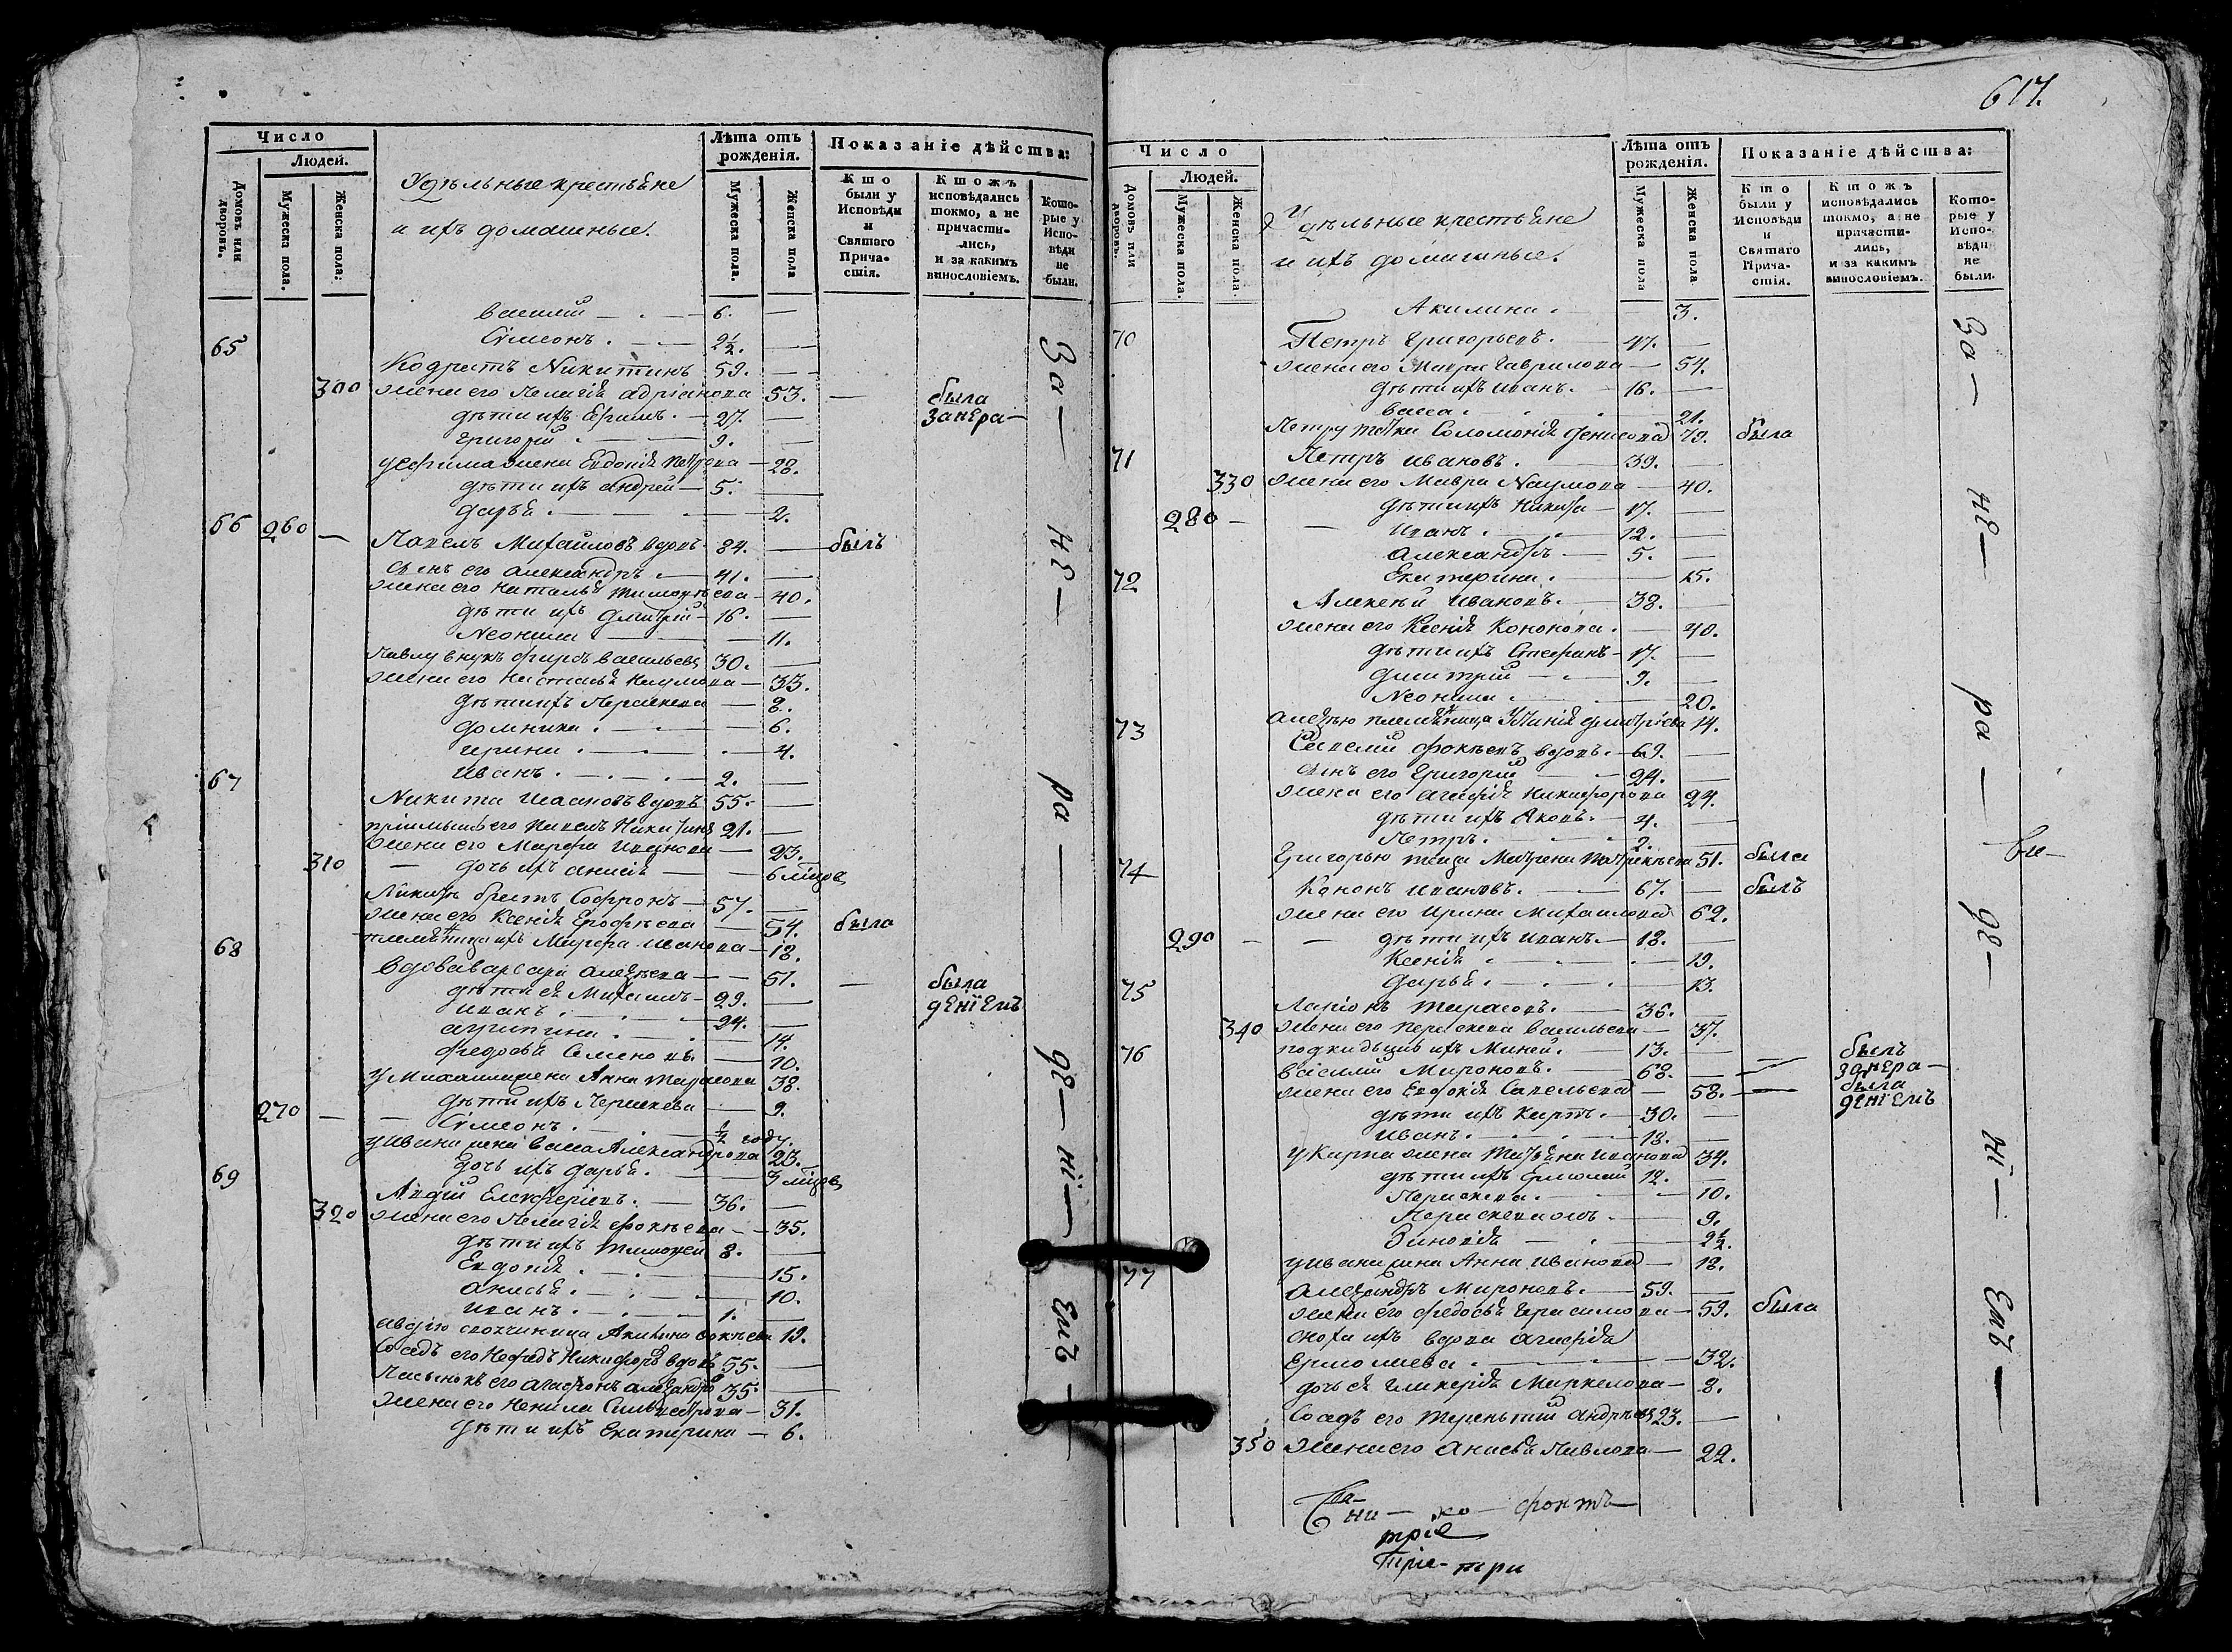 617.
Число
Людей.
Домовъ или дворовъ.
Мужеска пола.
Женска пола:
Удѣльные крестьяне
и ихъ домашные.
Лѣта отъ рожденія.
Мужеска пола.
Женска пола
Показаніе дѣйства:
Кто были у Исповѣди и Святаго Прича-стія.
Ктожъ исповѣдались токмо, а не причасти-лись, и за какимъ винословіемъ.
Кото-рые у Испо-вѣди не были.
Василий 6.
Сѵмеонъ. 2½.
65
Кодратъ Никитинъ 59.
300 жена его Пелагія Адріанова 53. была
дѣти ихъ Ефимъ. 27. за нера-
Григорій 9.
У Ефима жена Евдокія Петрова 28.
дѣти ихъ Андрей 5.
Дарья. 2.
66 260 Павелъ Михайловъ вдовъ 84. былъ
сынъ его Александръ. 41.
жена его Наталья Тимофѣева 40.
дѣти ихъ Дмитрій 16.
Неонила 11.
Павлу внукъ Фирсъ Васильевъ 30.
жена его Настасья Наумова 33.
дѣти ихъ Параскева 8.
Домника. 6.
Ирина. 4.
Иванъ. 2.
67
Никита Исааковъ вдовъ 55.
пріимышъ его Павелъ Никитинъ 21.
жена его Марфа Иванова 23.
310 дочь ихъ Анисія 6 мѣсяцовъ
Никиты братъ Софронъ 57.
жена его Ксенія Ерофѣева 54. была
племяница ихъ Марфа Иванова 18.
68
Вдова Варвара Алексѣева 51. была
дѣти ея Михаилъ 29. деніемъ
Иванъ. 24.
Агрипина. 14.
Федосья Семенова. 10.
У Михаила жена Анна Тарасова 38.
дѣти ихъ Парасковья 9.
270 Сѵмеонъ. ½ году.
У Ивана жена Васса Александрова 23.
дочь ихъ Дарья. 3 мѣсяцовъ
69
Авдій Елеѵферіевъ. 36.
320 жена его Пелагія Фокѣева 35.
дѣти ихъ Тимофей 8.
Евдокія. 15.
Анисья. 10.
Иванъ. 1.
Авдію своячиница Акилина Фокѣева 19.
Сосѣдъ его Нефедъ Никифоровъ вдовъ 55.
Пасынокъ его Агафонъ Александровъ 35.
жена его Ненила Сильвестрова 31.
дѣти ихъ Екатерина 6.
За — не — ра — де — ні — емъ —
Число
Людей.
Домовъ или дворовъ.
Мужеска пола.
Женска пола.
Удѣльные крестьяне
и ихъ домашные.
Лѣта отъ рожденія.
Мужеска пола
Женска пола
Показаніе дѣйства:
Кто были у Исповѣди и Святаго Прича-стія.
Ктожъ исповѣдались токмо, а не причасти-лись, и за какимъ винословіемъ.
Кото-рые у Испо-вѣди не были.
Акилина. 3.
70 Петръ Григорьевъ. 47.
жена его Мавра Гаврилова 54.
дѣти ихъ Иванъ. 16.
Васса. 21.
Петру тетка Соломонія Денисова 79. была
71 Петръ Ивановъ. 39.
330 жена его Мавра Наумова 40.
дѣти ихъ Никита 17.
280 Иванъ. 12.
Александръ. 5.
Екатерина. 15.
72
Алексѣй Ивановъ. 38.
жена его Ксенія Кононова. 40.
дѣти ихъ Стефанъ 17.
Дмитрій 9.
Неонила. 20.
Алексѣю племяница Устинія Дмитріева 14.
73
Савелій Фокѣевъ вдовъ. 69.
сынъ его Григорій 24.
жена его Агафія Никифорова 24.
дѣти ихъ Яковъ. 4.
Петръ. 2.
Григорью теща Матрена Патрекѣева 51. была
74 Кононъ Ивановъ. 67. былъ
жена его Ирина Михаилова 62.
290 дѣти ихъ Иванъ. 18.
Ксенія. 19.
Дарья. 13.
75
Ларіонъ Тарасовъ. 36.
340 жена его Параскева Васильева 37.
подкидышъ ихъ Миней. 13. былъ
76
Василий Мироновъ. 68. за нера-
жена его Евдокія Савельева 58. была
деніемъ
дѣти ихъ Карпъ. 30.
Иванъ. 18.
У Карпа жена Татьяна Иванова 34.
дѣти ихъ Ермолай 12.
Параскева. 10.
9.
Зиновія 2½.
У Ивана жена Анна Иванова 18.
77
Александръ Мироновъ. 59.
жена его Федосья Герасимова 59. была
сноха ихъ вдова Агафія
Ермолаева. 32.
дочь ея Гликерія Маркелова 8.
Сосѣдъ его Терентий Андреевъ 23.
350 жена его Анисья Павлова 22.
За — не — ра — де — ні — емъ —
ни — ко — фонтъ